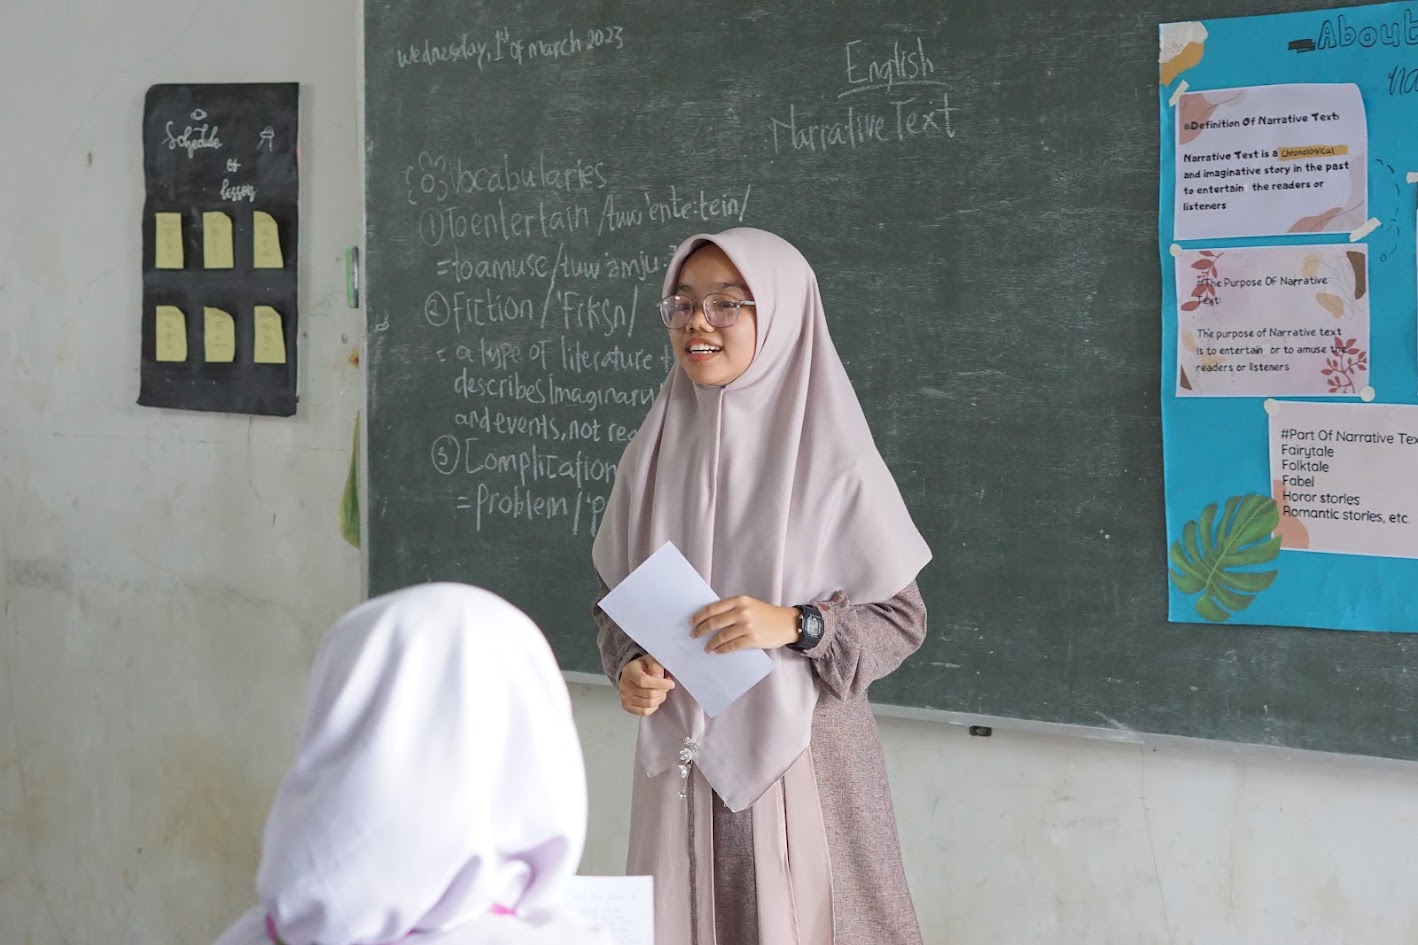 Schedule
Of
lesson
Wednesday, 1st of march 2023
English
Narrative Text
{8} Vocabularies
① To entertain /tuw'ente:tein/
= to amuse /tuw'əmju:
② Fiction /'Fɪkʃn/
= a type of literature
describes Imaginary
and events, not
③ Complication
= problem /'p
About
#Definition Of Narrative Text:
Narrative Text is a Chronological
and imaginative story in the past
to entertain the readers or
listeners
#The Purpose OF Narrative
Text:
The purpose of Narrative text
is to entertain or to amuse the
readers or listeners
#Part Of Narrative Tex
Fairytale
Folktale
Fabel
Horor stories
Romantic stories, etc.